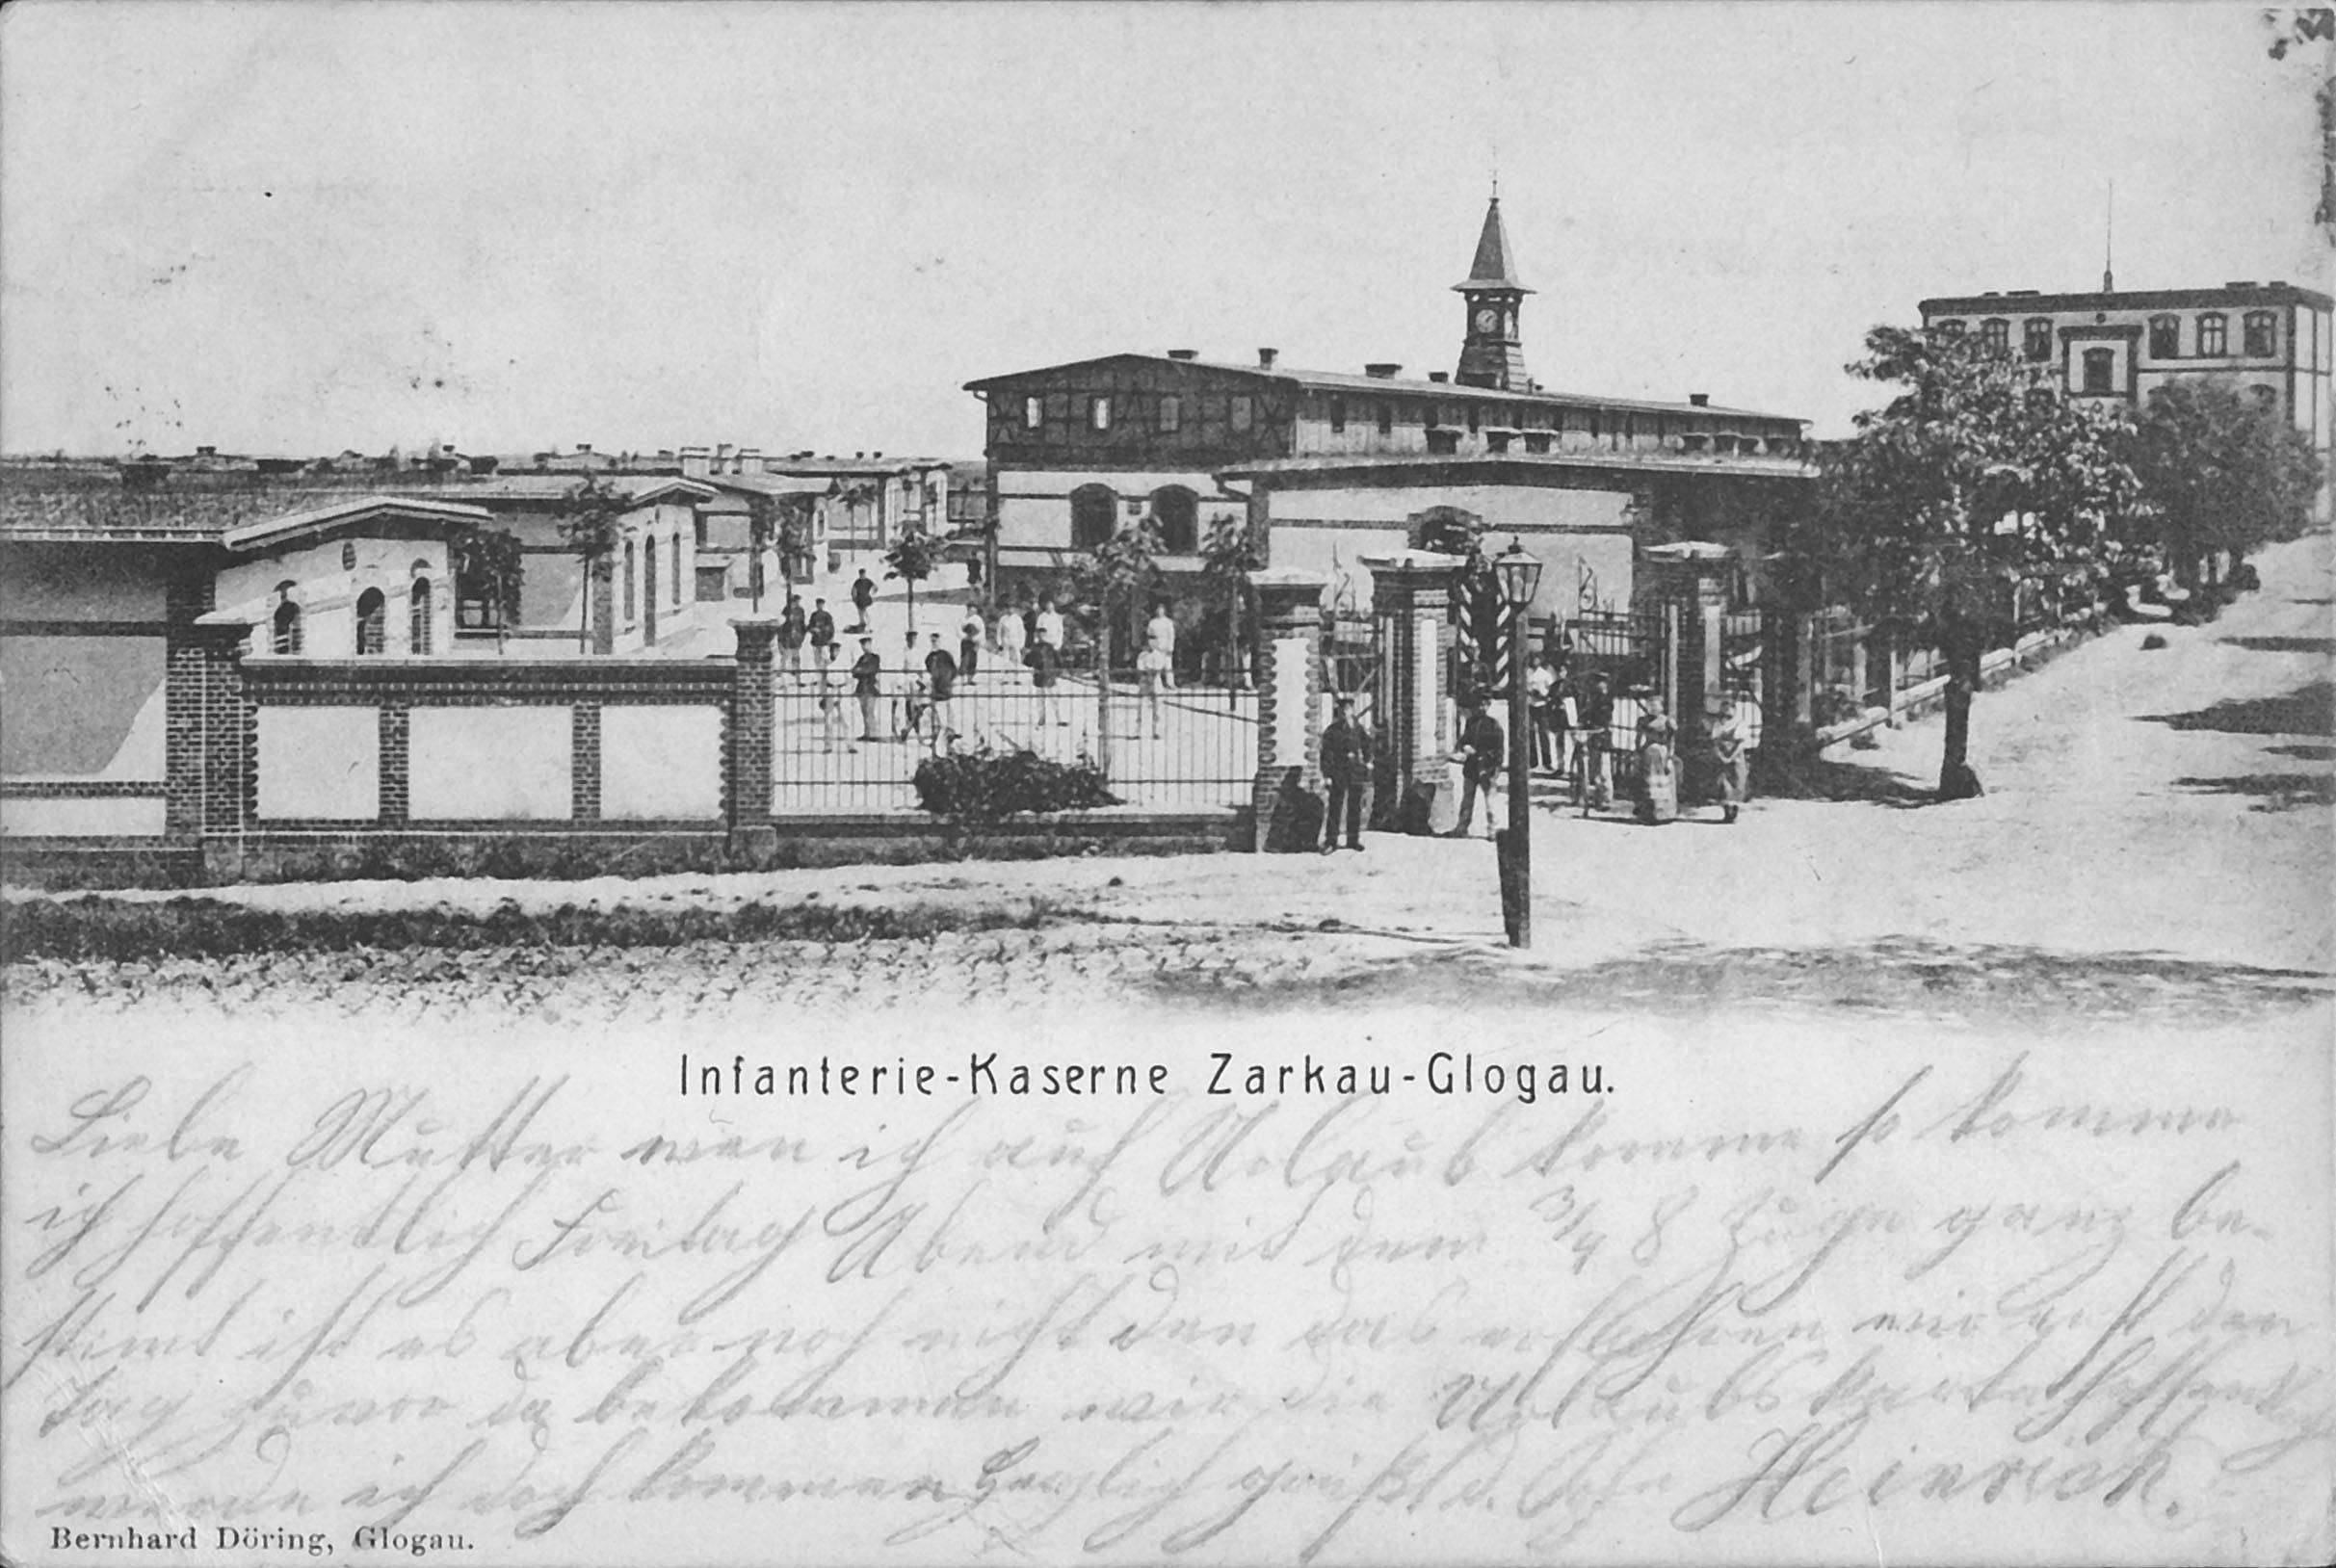 Infanterie-Kaserne Zarkau-Glogau.
Liebe Mutter wen ich auf Urlaub komme so komme
ich hoffendlich Freitag Abend mit dem 3/4 8 Zuge ganz be-
stimt ist es aber noch nicht den das erfahren wir erst den
tag zuvor da bekommen wir die Urlaubskarte hoffendlich
werde ich doch kommen Herzlich grüßt d. Sohn Heinrich.
Bernhard Döring, Glogau.